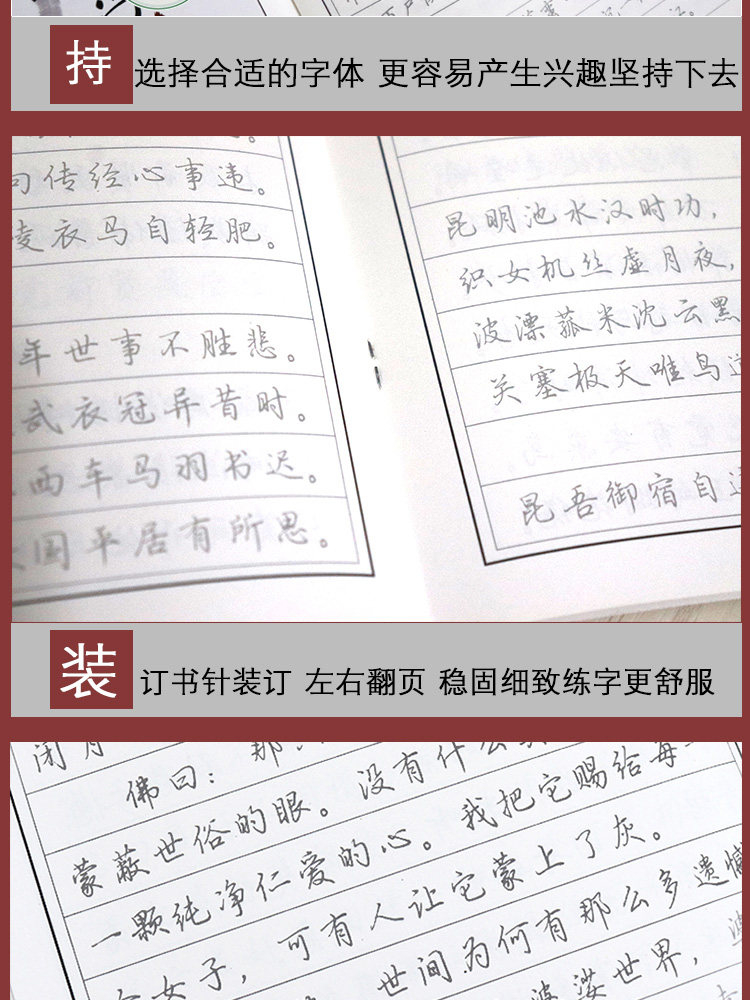 持 选择合适的字体 更容易产生兴趣坚持下去
句传经心事违。
凌衣马自轻肥。
年世事不胜悲。
武衣冠异昔时。
西车马羽书迟。
国平居有所思。
昆明池水汉时功，
织女机丝虚月夜，
波漂菰米沈云黑
关塞极天唯鸟道
昆吾御宿自
装 订书针装订 左右翻页 稳固细致练字更舒服
闭月
佛曰：那
蒙蔽世俗的眼。没有什么
一颗纯净仁爱的心。我把它赐给每一
女子，可有人让它蒙上了灰。
世间为何有那么多遗憾
婆娑世界，